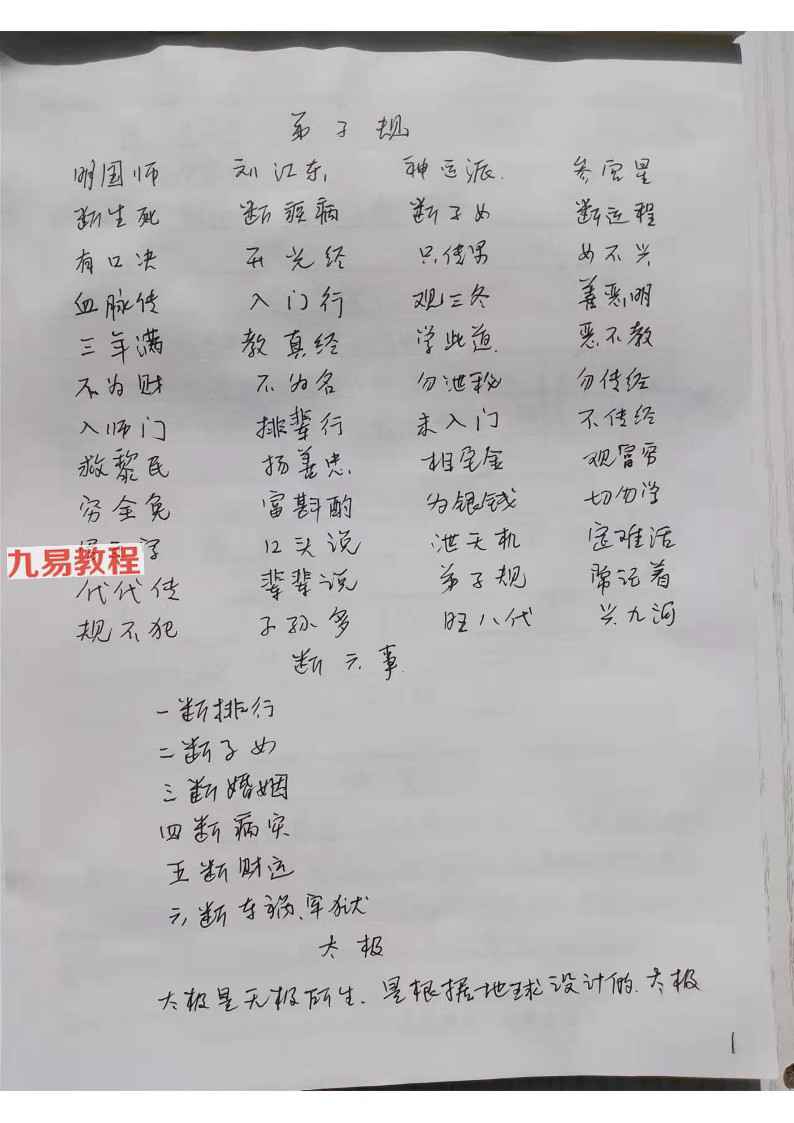 弟子规
明国师 刘江东 神运派 参宫星
断生死 断疾病 断子女 断运程
有口决 开光经 只传男 女不兴
血脉传 入门行 观三冬 善恶明
三年满 教真经 学此道 恶不教
不为财 不为名 勿泄秘 勿传经
入师门 排辈行 未入门 不传经
救黎民 扬善忠 相宅金 观富穷
穷全免 富斟酌 为银钱 切勿学
字 口头说 泄天机 定难活
九易教程
代代传 辈辈说 弟子规 常记着
规不犯 子孙多 旺八代 兴九河
断六事
一断排行
二断子女
三断婚姻
四断病灾
五断财运
六断车祸、牢狱
太极
太极是无极所生.是根据地球设计的.太极
1